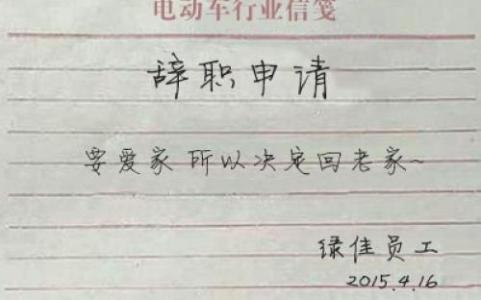 电动车行业信笺
辞职申请
要爱家 所以决定回老家~
绿佳员工
2015.4.16